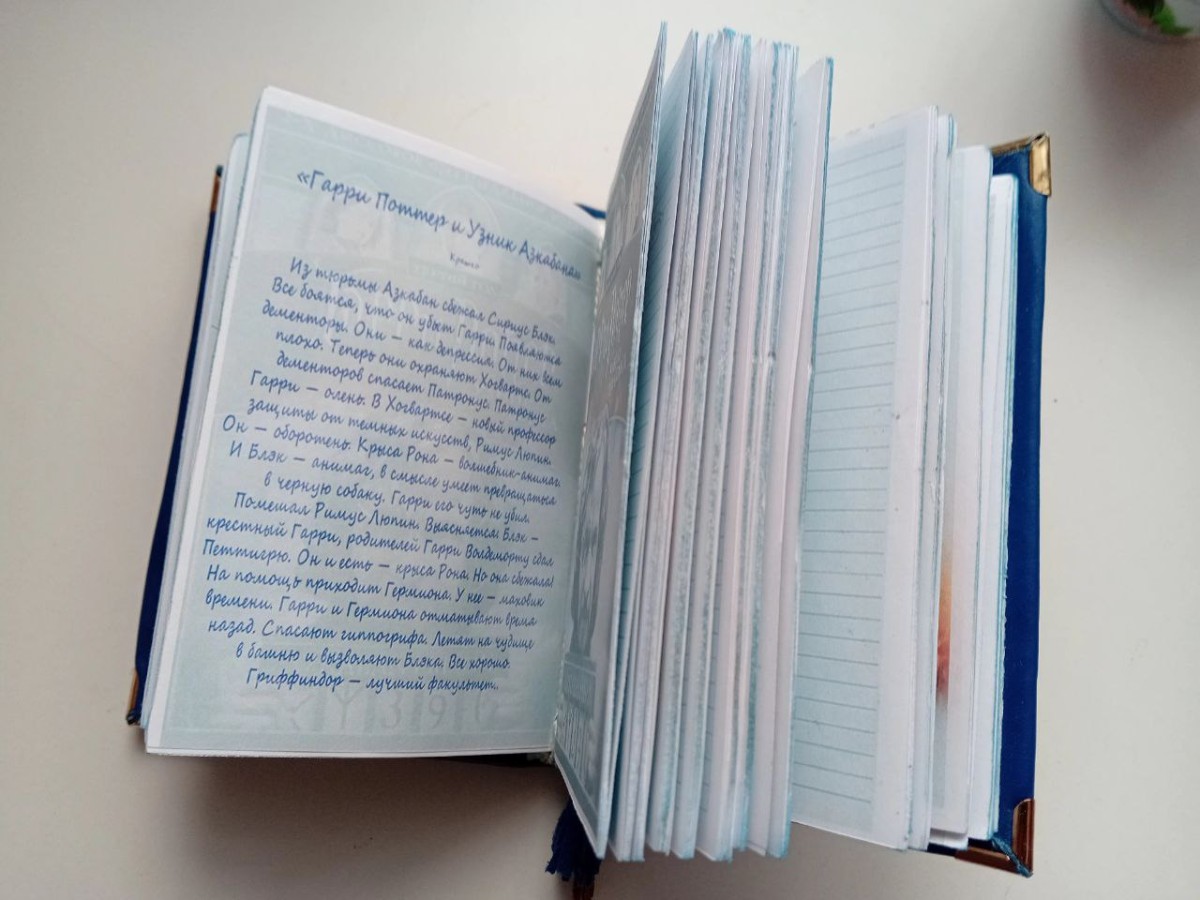 «Гарри Поттер и Узник Азкабана»
Кратко
Из тюрьмы Азкабан сбежал Сириус Блэк.
Все боятся, что он убьет Гарри. Появляются
дементоры. Они — как депрессия. От них всем
плохо. Теперь они охраняют Хогвартс. От
дементоров спасает Патронус. Патронус
Гарри — олень. В Хогвартсе — новый профессор
защиты от темных искусств, Римус Люпин.
Он — оборотень. Крыса Рона — волшебник-анимаг.
И Блэк — анимаг, в смысле умеет превращаться
в черную собаку. Гарри его чуть не убил.
Помешал Римус Люпин. Выясняется: Блэк —
крестный Гарри, родителей Гарри Волдеморту сдал
Петтигрю. Он и есть — крыса Рона. Но она сбежала!
На помощь приходит Гермиона. У нее — маховик
времени. Гарри и Гермиона отматывают время
назад. Спасают гиппогрифа. Летят на чудище
в башню и вызволяют Блэка. Все хорошо.
Гриффиндор — лучший факультет.